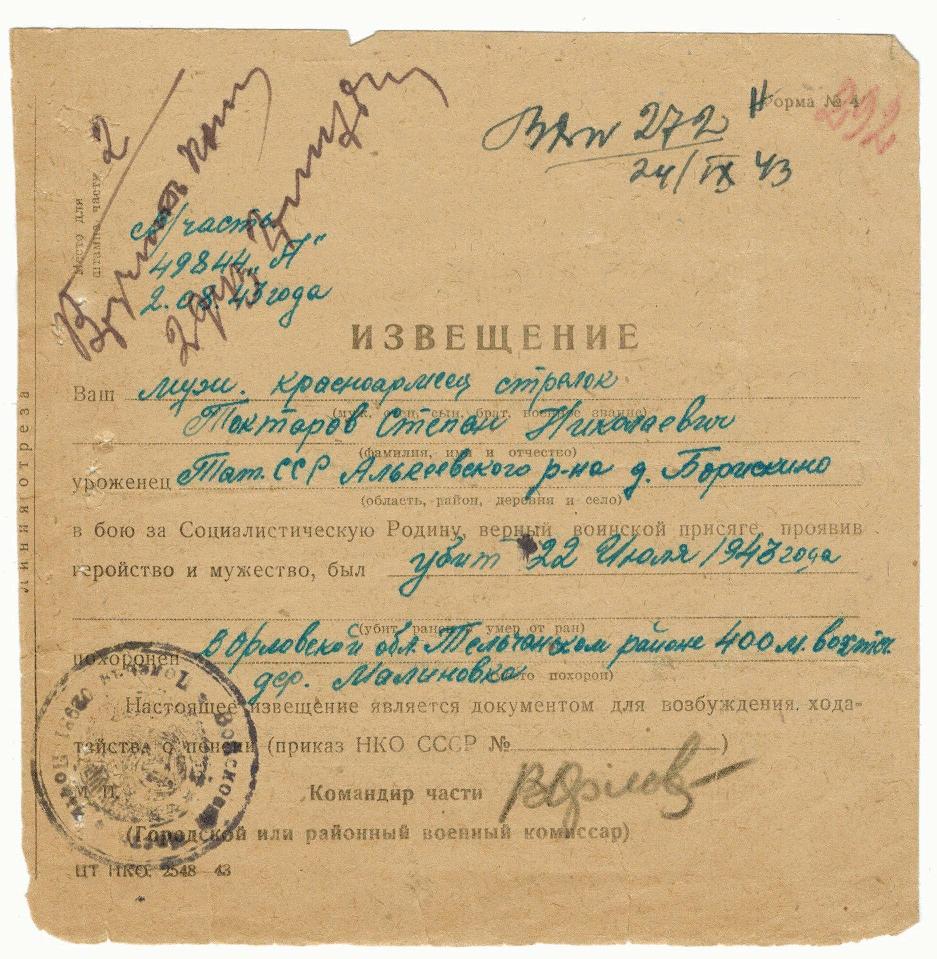 Форма № 4
292
Вх № 272
24/IX 43
Место для
штампа части
2
Вручить
в/часть
49844 „А“
2.08.43 года
ИЗВЕЩЕНИЕ
Ваш муж. красноармеец стрелок
(муж, сын, брат, военное звание)
Токтаров Степан Николаевич
(фамилия, имя и отчество)
уроженец Тат. ССР Алькеевского р-на д. Борискино
(область, район, деревня и село)
в бою за Социалистическую Родину, верный воинской присяге, проявив
геройство и мужество, был убит 22 Июля 1943 года
(убит, ранен, умер от ран)
похоронен в Орловской обл. Тельчанском районе 400 м.
дер. Малиновка
(место похорон)
Настоящее извещение является документом для возбуждения хода-
тайства о пенсии (приказ НКО СССР № )
М. П.
Командир части
(Городской или районный военный комиссар)
ЦТ НКО. 2548—43
Линия отреза